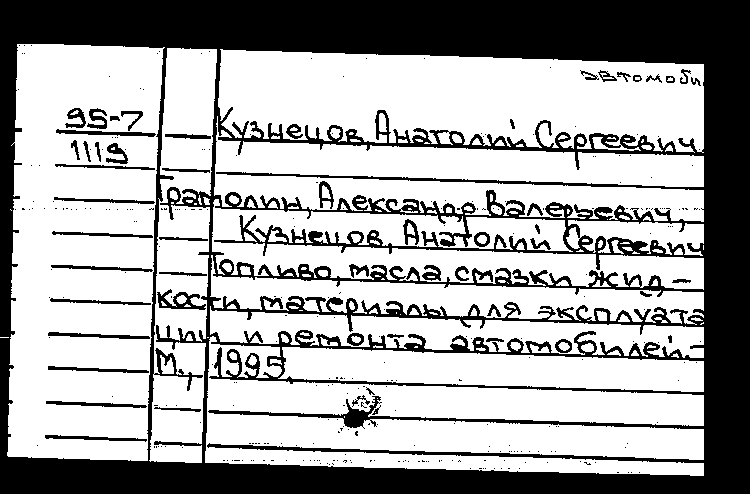 автомоби
95-7
1119
Кузнецов, Анатолий Сергеевич.
Грамолин, Александр Валерьевич,
Кузнецов, Анатолий Сергеевич
Топливо, масла, смазки, жид-
кости, материалы для эксплуата
ции и ремонта автомобилей.-
М., 1995.